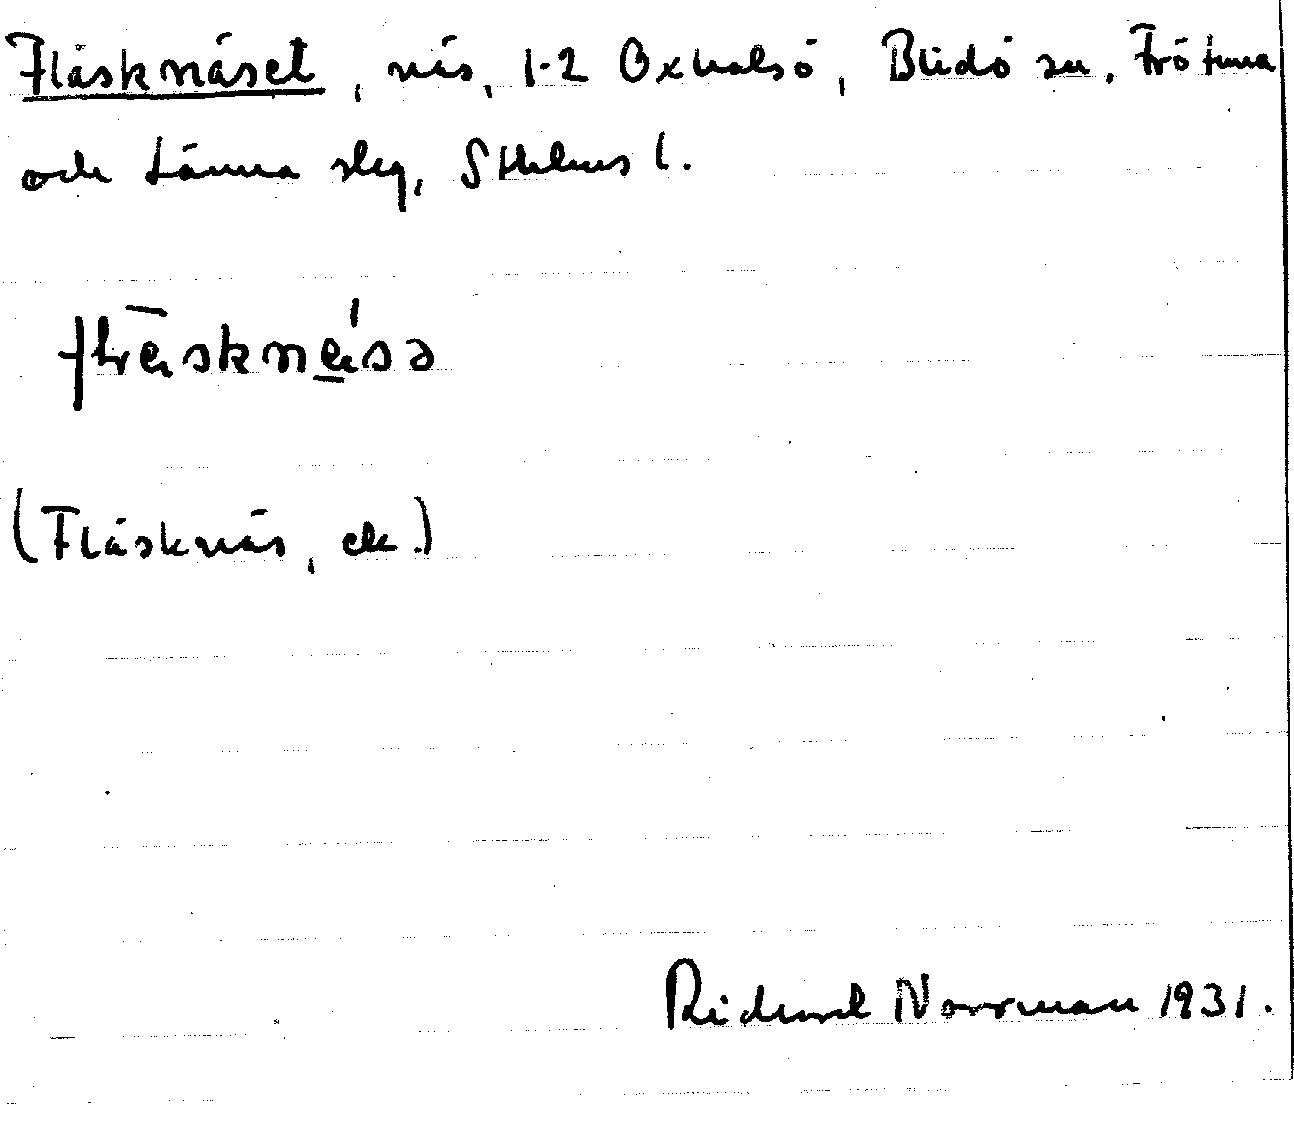 Fläsknäset, näs, 1-2 Oxhalsö, Blidö sn, Frötuna
och Länna slg, Sthlms l.
(Fläsknäs, ek.)
Richard Norrman 1931.